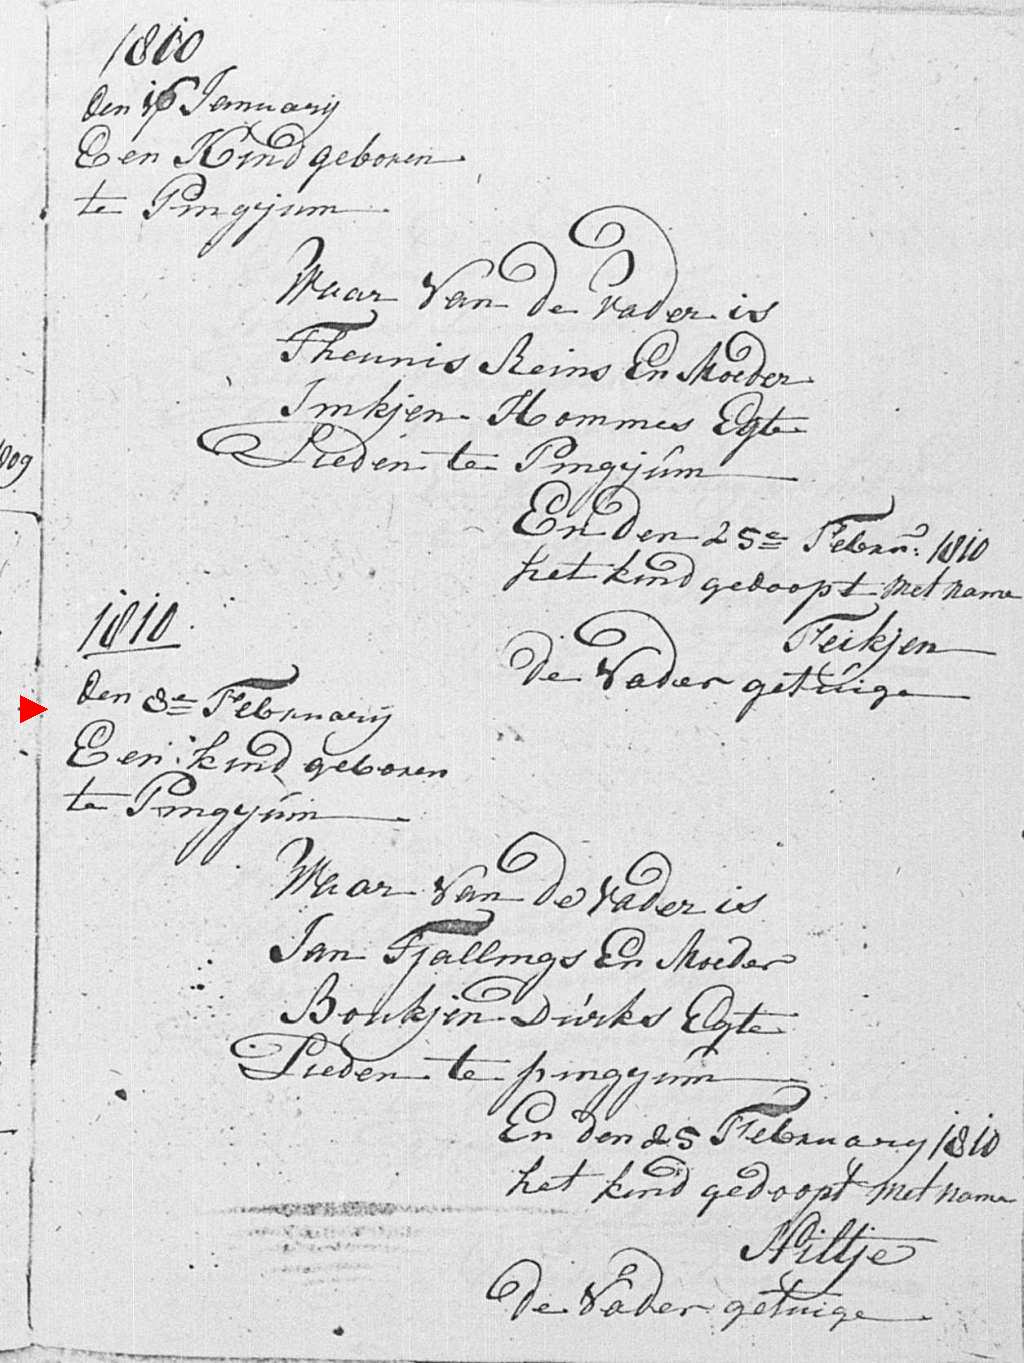 1810
Den 16 January
Een Kind geboren
te Pingjum
Waar Van de Vader is
Theunis Reins En Moeder
Imkjen Hommes Egte
Lieden te Pingjum
En den 25e Febru: 1810
het kind gedoopt Met name
Feikjen
De Vader getuige
809
1810
Den 8e February
Een kind geboren
te Pingjum
Waar Van de Vader is
Jan Tjallings En Moeder
Boukjen Dirks Egte
Lieden te pingjum
En den 25 February 1810
het kind gedoopt Met name
Hiltje
De Vader getuige